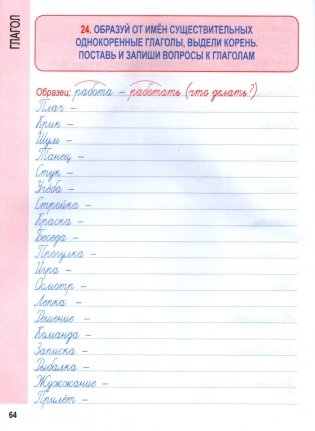 ГЛАГОЛ
24. ОБРАЗУЙ ОТ ИМЁН СУЩЕСТВИТЕЛЬНЫХ
ОДНОКОРЕННЫЕ ГЛАГОЛЫ, ВЫДЕЛИ КОРЕНЬ.
ПОСТАВЬ И ЗАПИШИ ВОПРОСЫ К ГЛАГОЛАМ
Образец: работа – работать (что делать?).
Плач –
Крик –
Шум –
Танец –
Стук –
Учёба –
Стройка –
Краска –
Беседа –
Прогулка –
Игра –
Осмотр –
Лепка –
Решение –
Команда –
Записка –
Рыбалка –
Жужжание –
Прилёт –
64